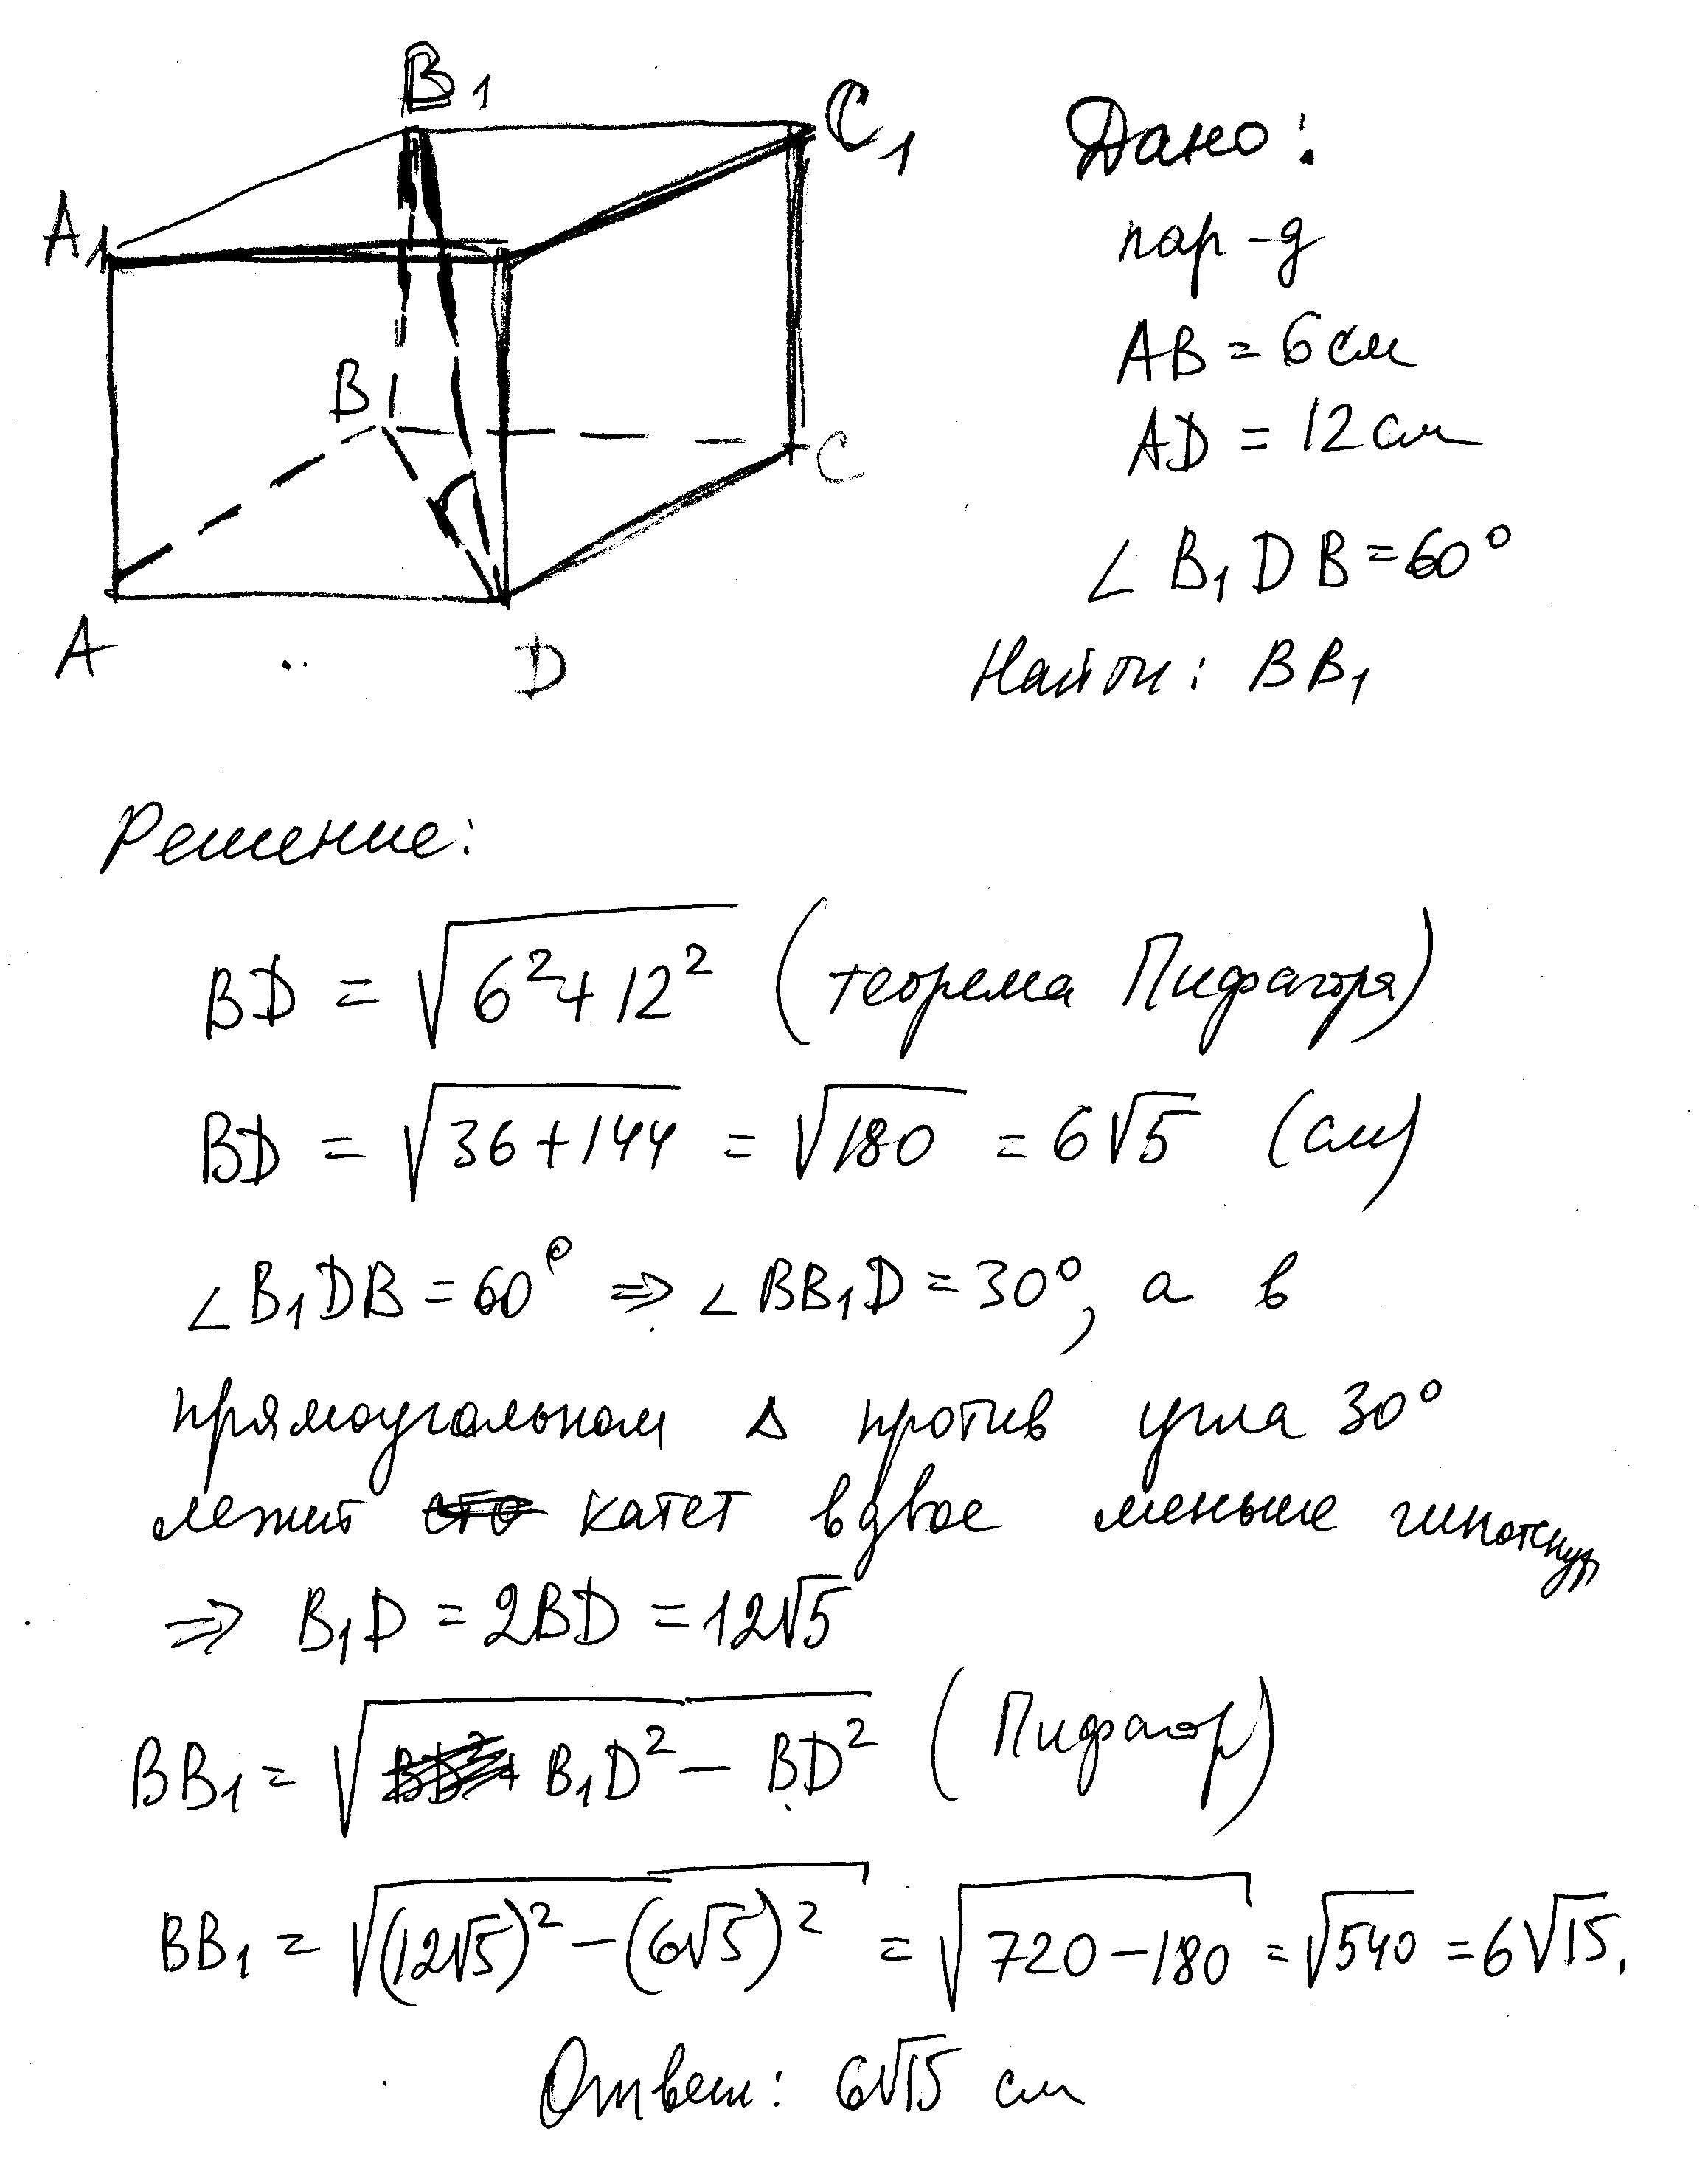 B₁
C₁
A₁
B
C
A
D
Дано:
пар-д
AB = 6 см
AD = 12 см
∠ B₁DB = 60°
Найти: BB₁
Решение:
BD = √(6² + 12²) (теорема Пифагора)
BD = √(36 + 144) = √180 = 6√5 (см)
∠B₁DB = 60° ⇒ ∠BB₁D = 30°, а в
прямоугольном Δ против угла 30°
лежит катет вдвое меньше гипотенузы
⇒ B₁D = 2BD = 12√5
BB₁ = √(B₁D² − BD²) (Пифагор)
BB₁ = √((12√5)² − (6√5)²) = √(720 − 180) = √540 = 6√15.
Ответ: 6√15 см